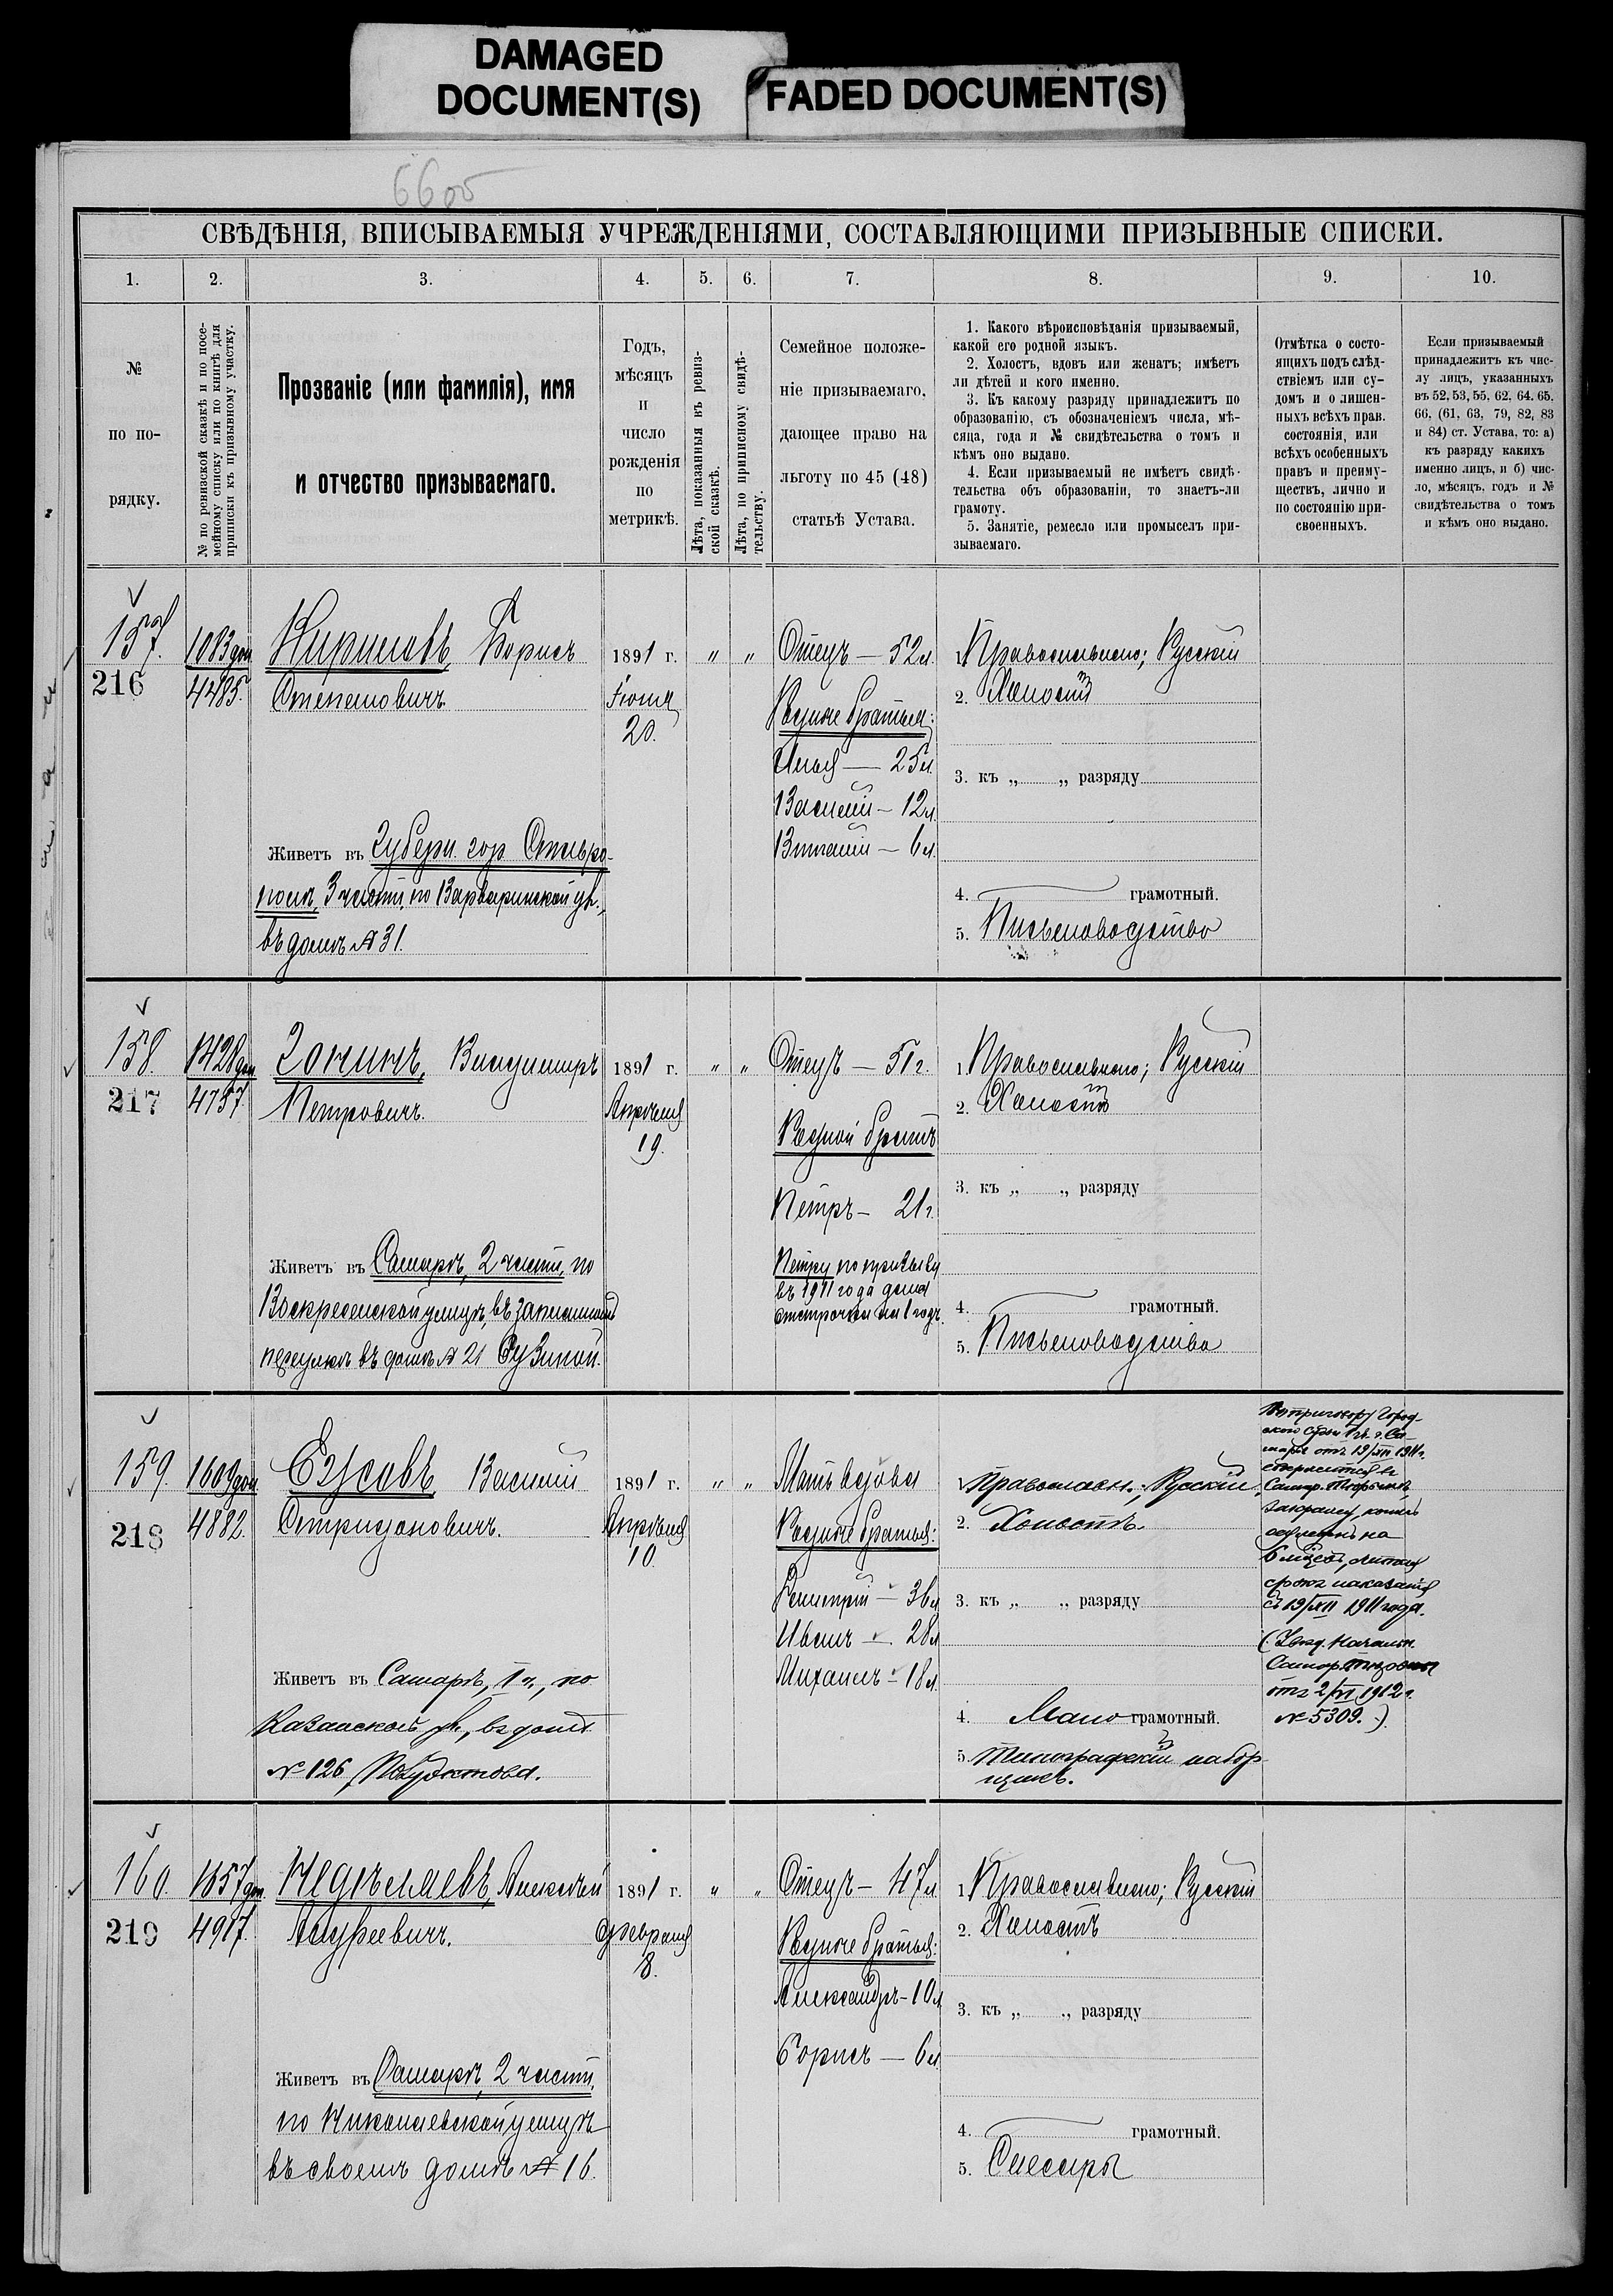 DAMAGED
DOCUMENT(S)
FADED DOCUMENT(S)
6605
СВѢДѢНІЯ, ВПИСЫВАЕМЫЯ УЧРЕЖДЕНІЯМИ, СОСТАВЛЯЮЩИМИ ПРИЗЫВНЫЕ СПИСКИ.
1. 2. 3. 4. 5. 6. 7. 8. 9. 10.
№
по по-
рядку.
№ по ревизской сказкѣ и по посе-
мейному списку или по книгѣ для
приписки къ призывному участку.
Прозваніе (или фамилія), имя
и отчество призываемаго.
Годъ,
мѣсяцъ
и
число
рожденія
по
метрикѣ.
Лѣта, показанныя въ ревиз-
ской сказкѣ.
Лѣта, по приписному свидѣ-
тельству.
Семейное положе-
ніе призываемаго,
дающее право на
льготу по 45 (48)
статьѣ Устава.
1. Какого вѣроисповѣданія призываемый,
какой его родной языкъ.
2. Холостъ, вдовъ или женатъ; имѣетъ
ли дѣтей и кого именно.
3. Къ какому разряду принадлежитъ по
образованію, съ обозначеніемъ числа, мѣ-
сяца, года и № свидѣтельства о томъ и
кѣмъ оно выдано.
4. Если призываемый не имѣетъ свидѣ-
тельства объ образованіи, то знаетъ-ли
грамоту.
5. Занятіе, ремесло или промыселъ при-
зываемаго.
Отмѣтка о состо-
ящихъ подъ слѣд-
ствіемъ или су-
домъ и о лишен-
ныхъ всѣхъ прав.
состоянія, или
всѣхъ особенныхъ
правъ и преиму-
ществъ, лично и
по состоянію при-
своенныхъ.
Если призываемый
принадлежитъ къ чис-
лу лицъ, указанныхъ
въ 52, 53, 55, 62, 64, 65,
66, (61, 63, 79, 82, 83
и 84) ст. Устава, то: а)
къ разряду какихъ
именно лицъ, и б) чис-
ло, мѣсяцъ, годъ и №
свидѣтельства о томъ
и кѣмъ оно выдано.
157.
216
1083 доп.
4485.
Кириловъ, Борисъ
Степановичъ
Живетъ въ Губерн. гор. Ставро-
полѣ, 3 части, по Варваринской ул.,
въ домѣ № 31.
1891 г.
Іюля
20.
„ „
Отецъ — 52 л.
Родные братья:
Илья — 25 л.
Василій — 12 л.
Виталій — 6 л.
1. Православнаго; Русскій
2. Холостъ
3. къ „ „ разряду
4. грамотный.
5. Письмоводство
158.
217
1428 доп.
4757
Гонинъ, Владимиръ
Петровичъ.
Живетъ въ Самарѣ, 2 части, по
Воскресенской улицѣ, въ
переулкѣ въ домѣ № 21
1891 г.
Апрѣля
19.
„ „
Отецъ — 51 г.
Родной братъ
Петръ — 21 г.
Петру по призыву
въ 1911 года дана
отсрочка на 1 годъ.
1. Православнаго; Русскій
2. Холостъ
3. къ „ „ разряду
4. грамотный.
5. Письмоводство
159.
218
1609 доп.
4882.
Василій
Живетъ въ Самарѣ, 1 ч., по
Казанской ул., въ домѣ
№ 126,
1891 г.
Апрѣля
10.
„ „
Мать вдова
Родные братья:
Димитрій — 36 л
Иванъ — 28 л
Михаилъ — 18 л.
1. Православн.; Русскій.
2. Холостъ.
3. къ „ „ разряду
4. Мало грамотный.
5. Типографскій набор-
щикъ.
По приговору Город-
ского Судьи 1 уч. г. Са-
мары отъ 19/XII 1911 г.
6 мѣсяц.,
срокъ наказанія
съ 19/XII 1911 года.
Началн.
отъ 2/VI 1912 г.
№ 5309.)
160.
219
1657 доп.
4917.
Недѣляевъ, Алексѣй
Андреевичъ.
Живетъ въ Самарѣ, 2 части,
по Николаевской улицѣ
въ своемъ домѣ № 16.
1891 г.
Февраля
8.
„ „
Отецъ — 47 л
Родные братья:
Александръ — 10 л
Борисъ — 6 л
1. Православнаго; Русскій
2. Холостъ
3. къ „ „ разряду
4. грамотный.
5. Слесарь